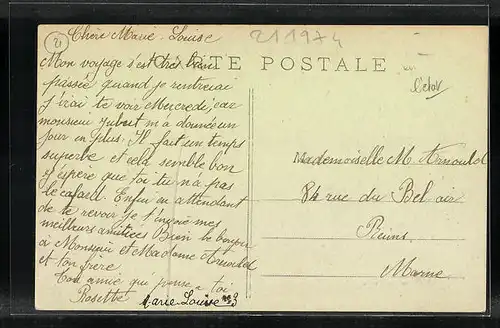 21
Chère Marie-Louise
211974
CARTE POSTALE
Mon voyage s'est très bien
passée quand je rentrerai
j'irai te voir Mercredi, car
monsieur Jubert m'a donnée un
jour en plus. Il fait un temps
superbe et cela semble bon
j'espère que toi tu n'a pas
le cafard. Enfin en attendant
de te revoir je t'envoie mes
meilleurs amitiées Bien le bonjour
à Monsieur et Madame Arnould
et ton frère.
Ton amie qui pense a toi
Rosette
Marie-Louise
Mademoiselle M. Arnould
84 rue du Bel air
Reims
Marne